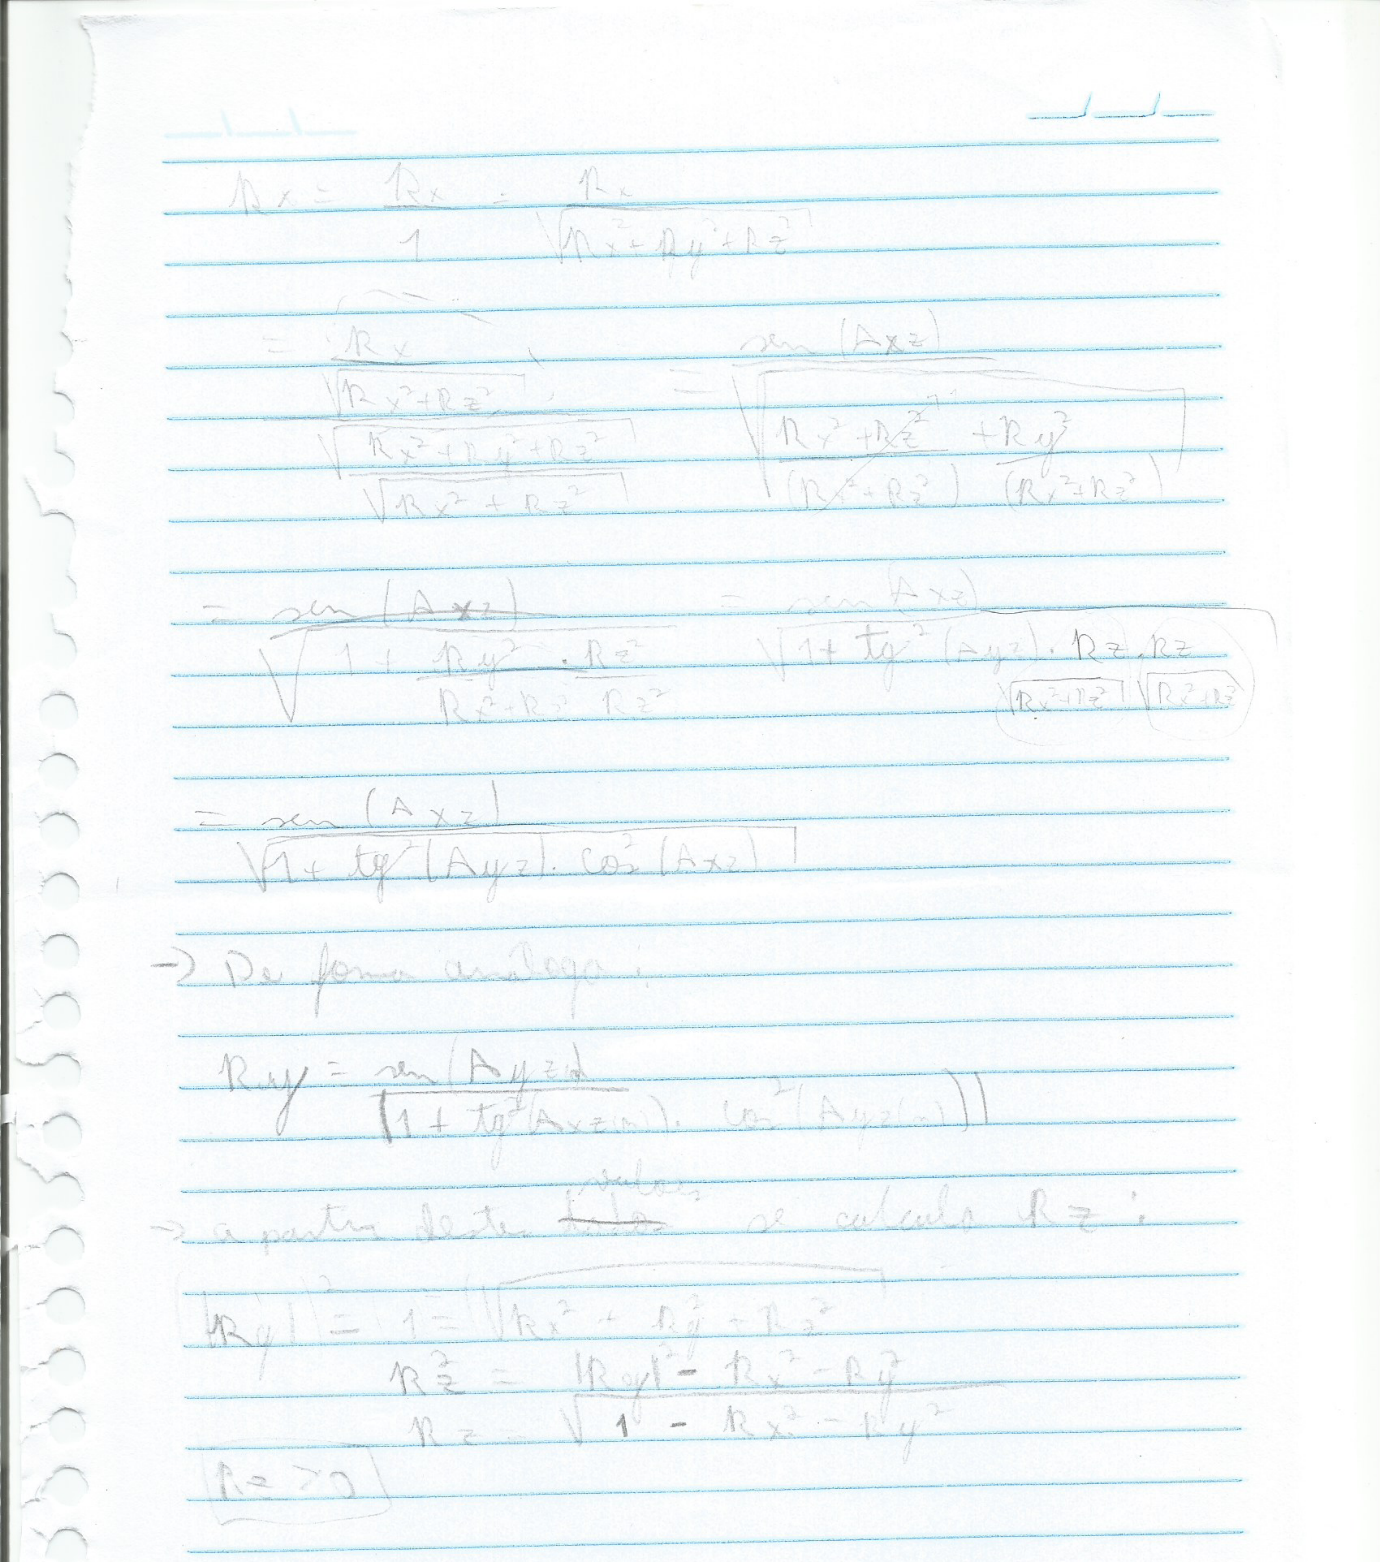 Rx = Rx/1 = Rx/√(Rx²+Ry²+Rz²)
= (Rx/√(Rx²+Rz²))/(√(Rx²+Ry²+Rz²)/√(Rx²+Rz²)) = sen(Axz)/√((Rx²+Rz²)/(Rx²+Rz²) + Ry²/(Rx²+Rz²))
= sen(Axz)/√(1 + Ry²/(Rx²+Rz²) · Rz²/Rz²) = sen(Axz)/√(1+tg²(Ayz) · Rz/√(Rx²+Rz²) · Rz/√(Rx²+Rz²))
= sen(Axz)/√(1+tg²(Ayz) · cos²(Axz))
→ De forma análoga:
Ry = sen(Ayz)/√(1+tg²(Axz(n)) · cos²(Ayz(n)))
valores
→ a partir destes se calcula Rz:
|Ry|² = 1 = √(Rx² + Ry² + Rz²)
Rz² = |Ry|² - Rx² - Ry²
Rz = √(1 - Rx² - Ry²)
Rz > 0